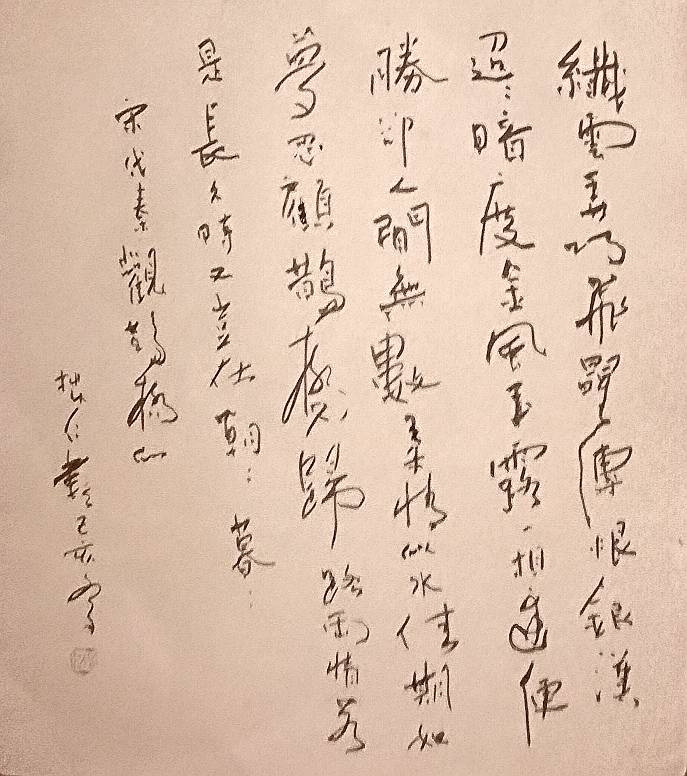 纖雲弄巧飛星傳恨銀漢
迢々暗度金風玉露一相逢便
勝卻人間無數柔情似水佳期如
夢忍顧鵲橋歸路兩情若
是長久時又豈在朝々暮々
宋代秦觀鵲橋仙
拙仁書己亥